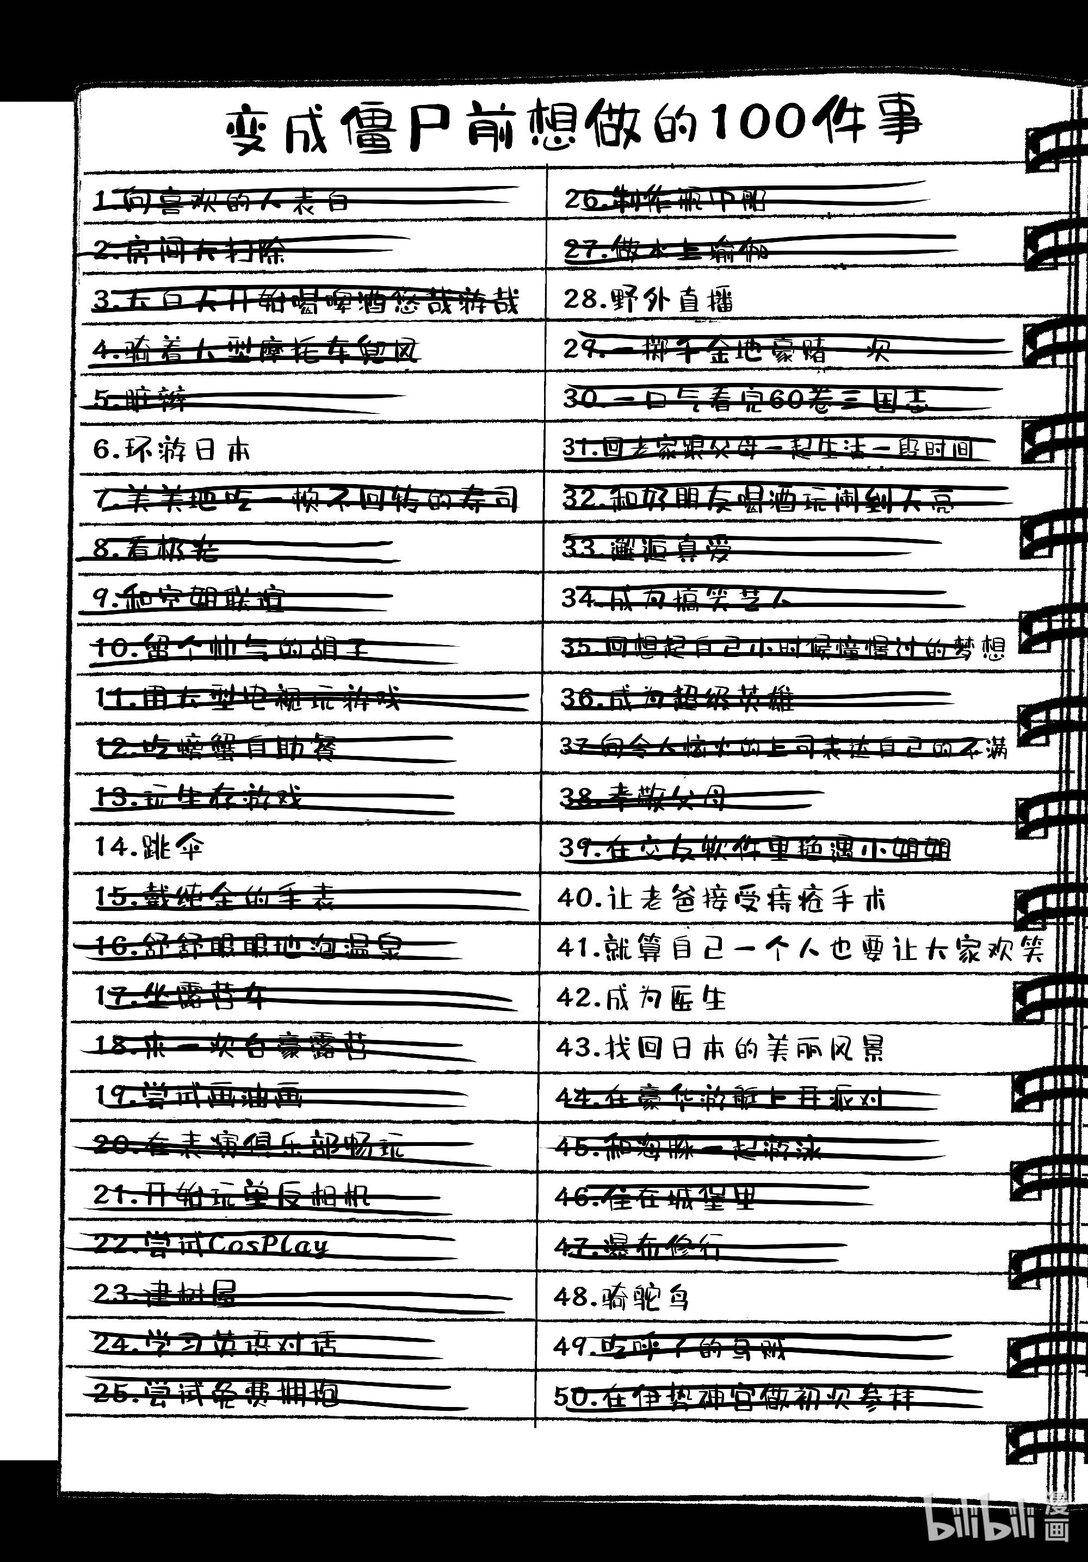 变成僵尸前想做的100件事
1.向喜欢的人表白
2.房间大扫除
3.大白天开始喝啤酒悠哉游哉
4.骑着大型摩托车兜风
5.脏辫
6.环游日本
7.美美地吃一顿不回转的寿司
8.看极光
9.和空姐联谊
10.留个帅气的胡子
11.用大型电视玩游戏
12.吃螃蟹自助餐
13.玩生存游戏
14.跳伞
15.戴纯金的手表
16.舒舒服服地泡温泉
17.坐露营车
18.来一次自豪露营
19.尝试画油画
20.在表演俱乐部畅玩
21.开始玩单反相机
22.尝试CosPlay
23.建树屋
24.学习英语对话
25.尝试免费拥抱
26.制作瓶中船
27.做水上瑜伽
28.野外直播
29.一掷千金地豪赌一次
30.一口气看完60卷三国志
31.回老家跟父母一起生活一段时间
32.和好朋友喝酒玩闹到天亮
33.邂逅真爱
34.成为搞笑艺人
35.回想起自己小时候憧憬过的梦想
36.成为超级英雄
37.向令人恼火的上司表达自己的不满
38.孝敬父母
39.在交友软件里艳遇小姐姐
40.让老爸接受痔疮手术
41.就算自己一个人也要让大家欢笑
42.成为医生
43.找回日本的美丽风景
44.在豪华游艇上开派对
45.和海豚一起游泳
46.住在城堡里
47.瀑布修行
48.骑鸵鸟
49.吃呼子的乌贼
50.在伊势神宫做初次参拜
bilibili漫画